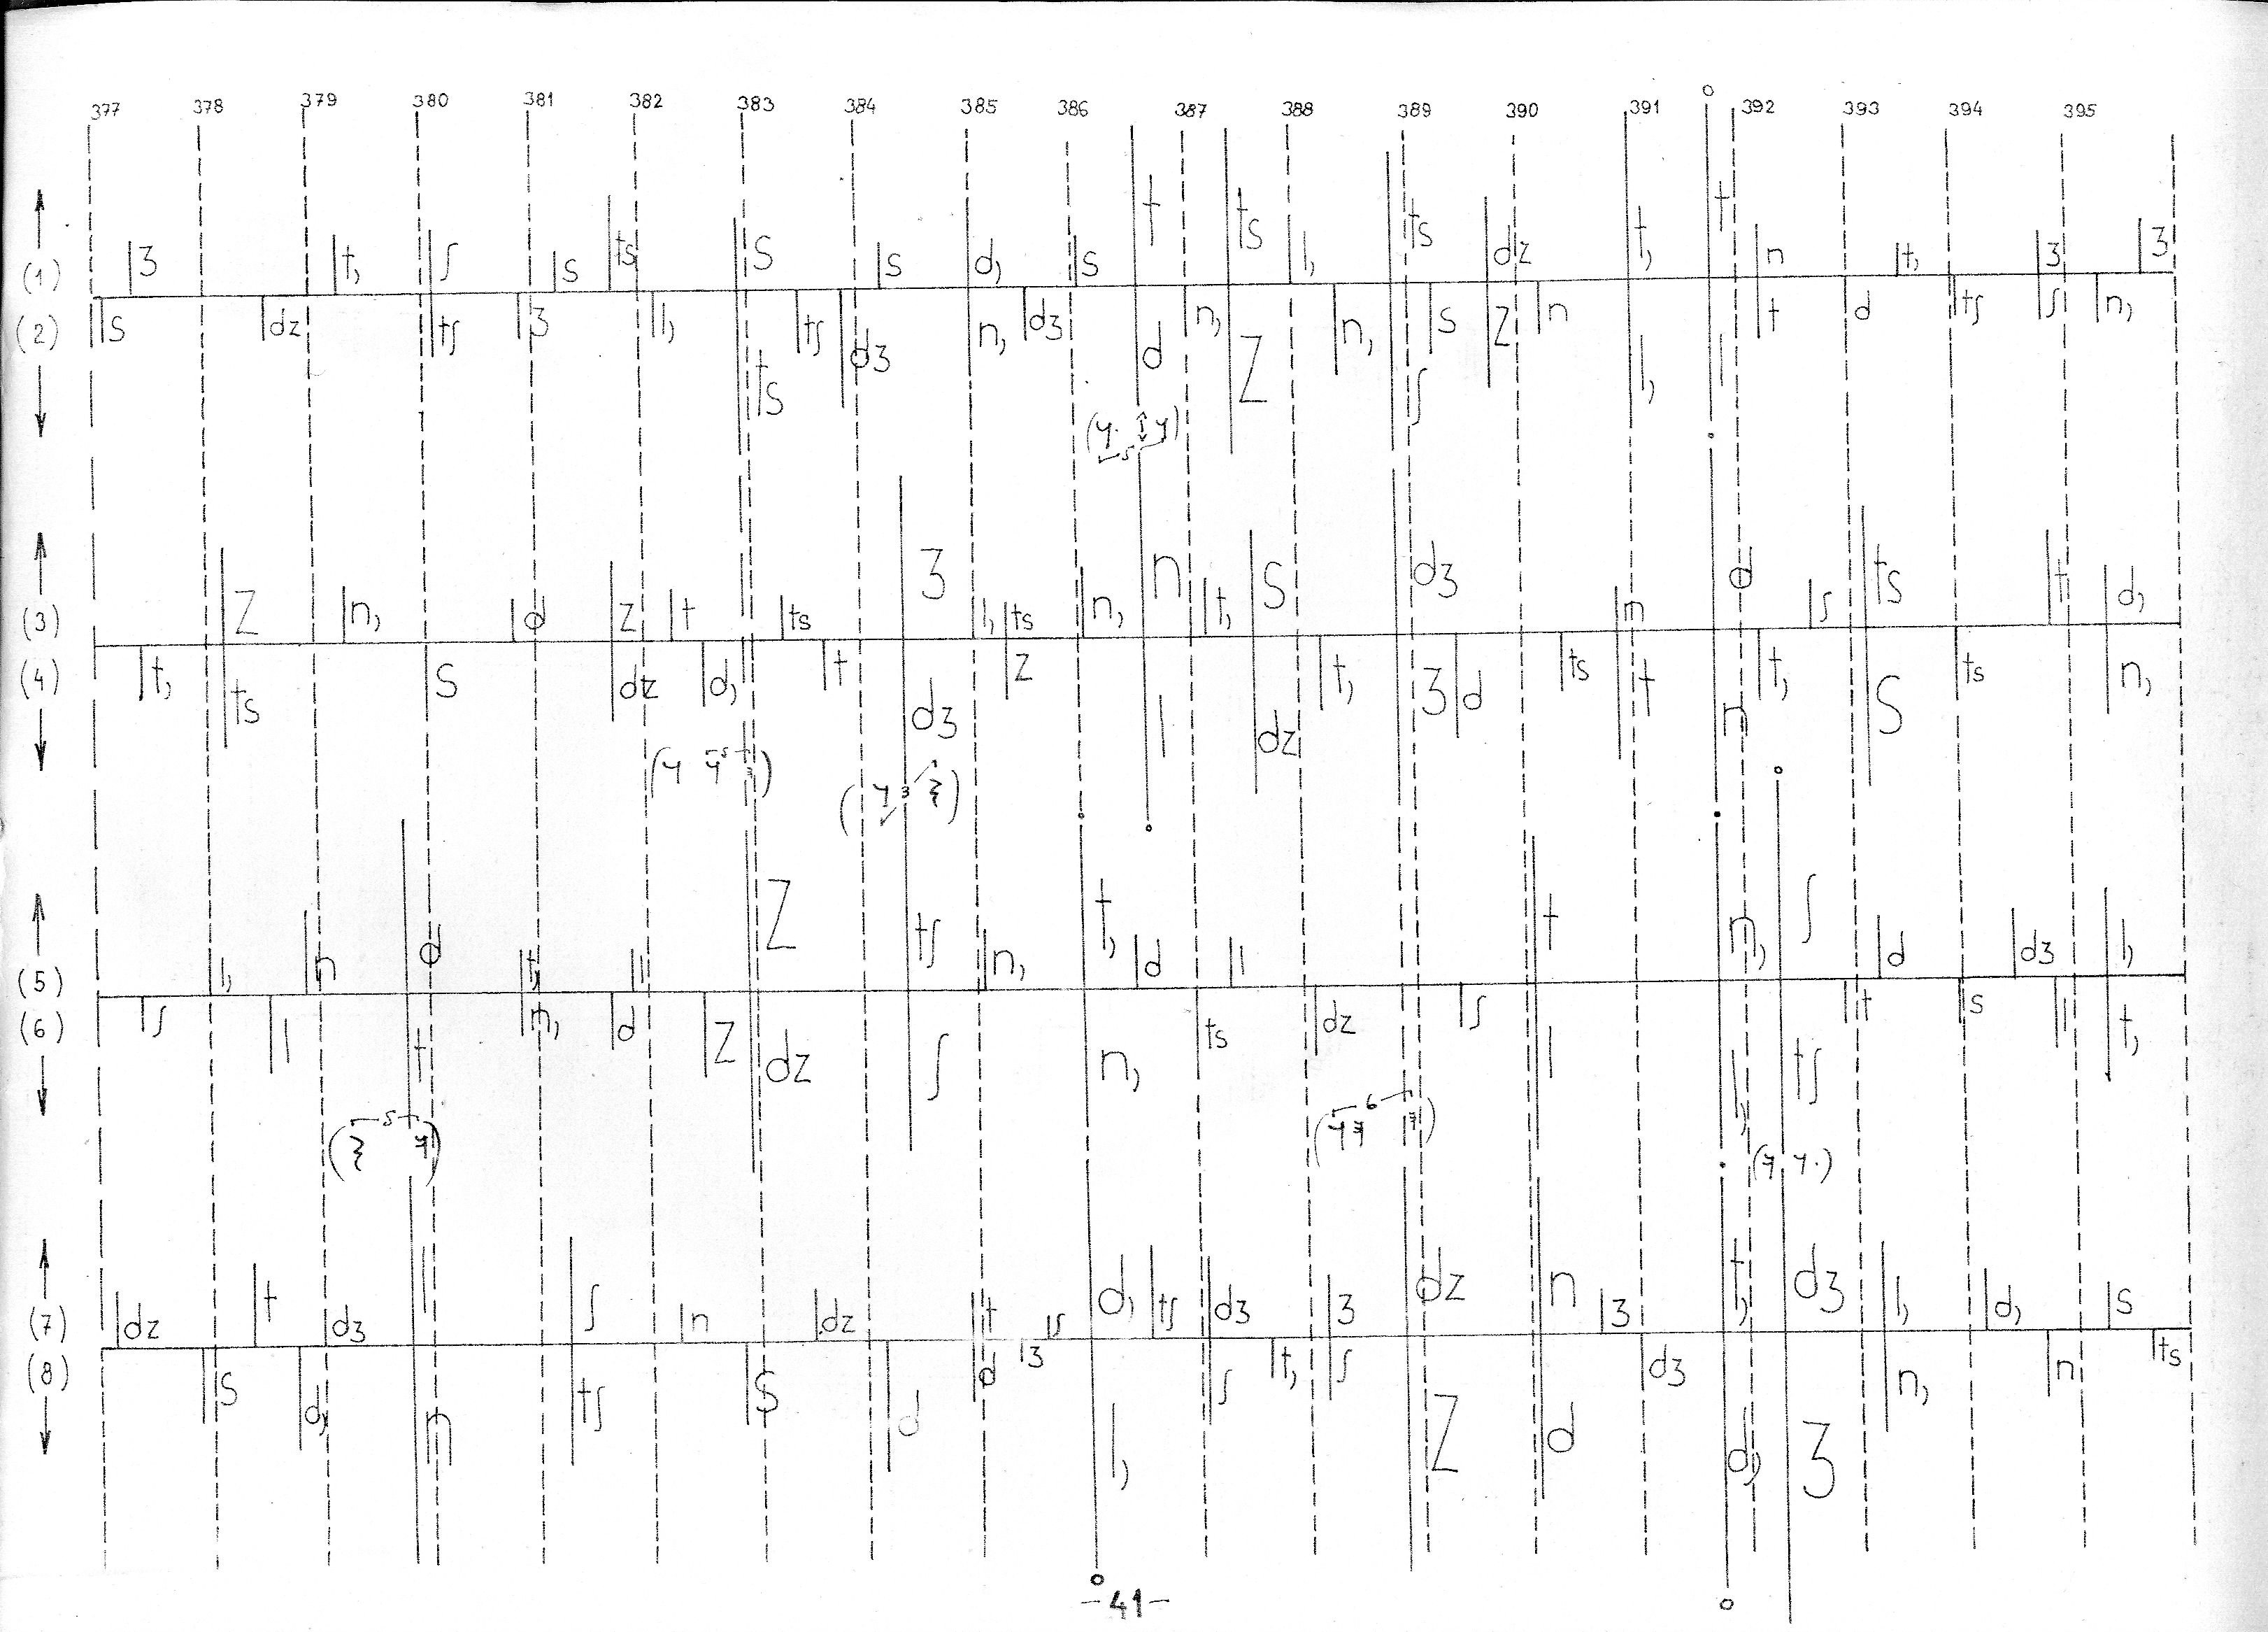 377 378 379 380 381 382 383 384 385 386 387 388 389 390 391 392 393 394 395
(1) ʒ t, ʃ s ts s s d, s t ts l, ts dz t, t n t, ʒ ʒ
(2) s dz tʃ ʒ l, ts tʃ dʒ n, dʒ d n, z n, ʃ s z n l, l t d tʃ ʃ n,
(3) z n, d z t ts ʒ l, ts n, n t, s dʒ n d ʃ ts t d,
(4) t, ts s dz d, t dʒ z l dz t, ʒ d ts t n t, s ts n,
(5) l, n d t, l z tʃ n, t, d l t n, ʃ d dʒ l,
(6) ʃ l t n, d z dz ʃ n, ts dz ʃ l l, tʃ t s l t,
(7) dz t dʒ l ʃ n dz t ʃ d, tʃ dʒ ʒ dz n ʒ t, dʒ l, d, s
(8) s d, n tʃ s d d ʒ l, ʃ t, ʃ z d dʒ d, ʒ n, n ts
-41-